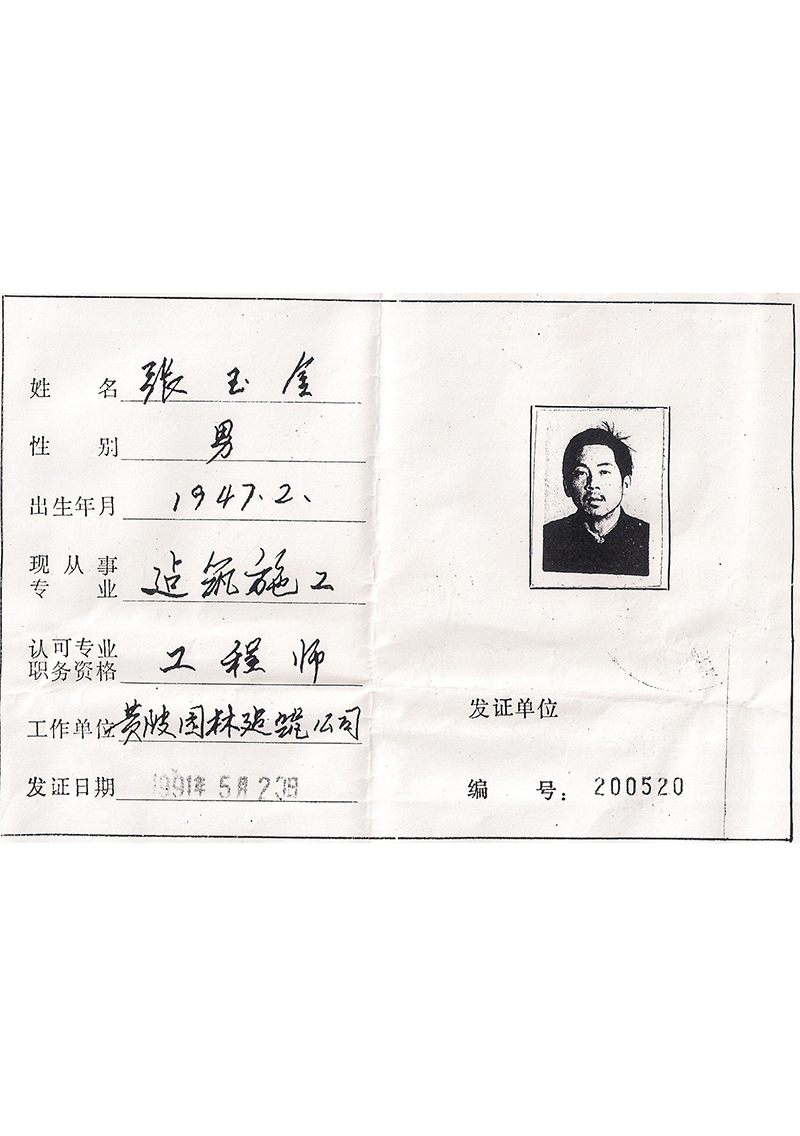 姓 名 张玉金
性 别 男
出生年月 1947.2.
现从事专业 建筑施工
认可专业职务资格 工程师
工作单位 黄陂园林建筑公司
发证日期 1991年5月20日
发证单位
编 号：200520